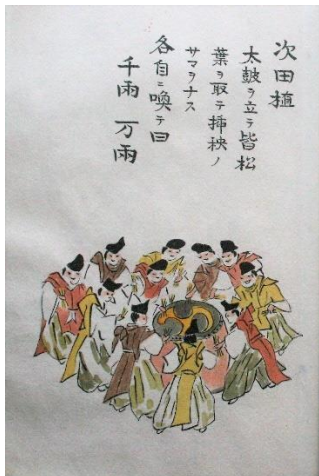 次田植
太鼓ヲ立テ皆松
葉ヲ取テ挿秧ノ
サマヲナス
各自ニ喚テ曰
千雨 万雨